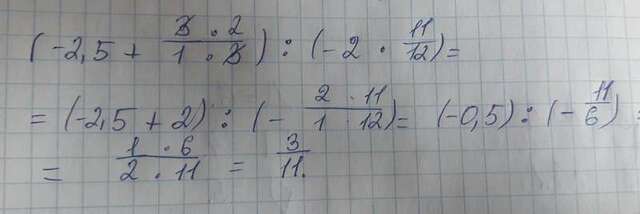 (-2,5 + \frac{3 · 2}{1 · 3}) : (-2 · \frac{11}{12}) =
= (-2,5 + 2) : (-\frac{2 · 11}{1 · 12}) = (-0,5) : (-\frac{11}{6}) =
= \frac{1 · 6}{2 · 11} = \frac{3}{11}.